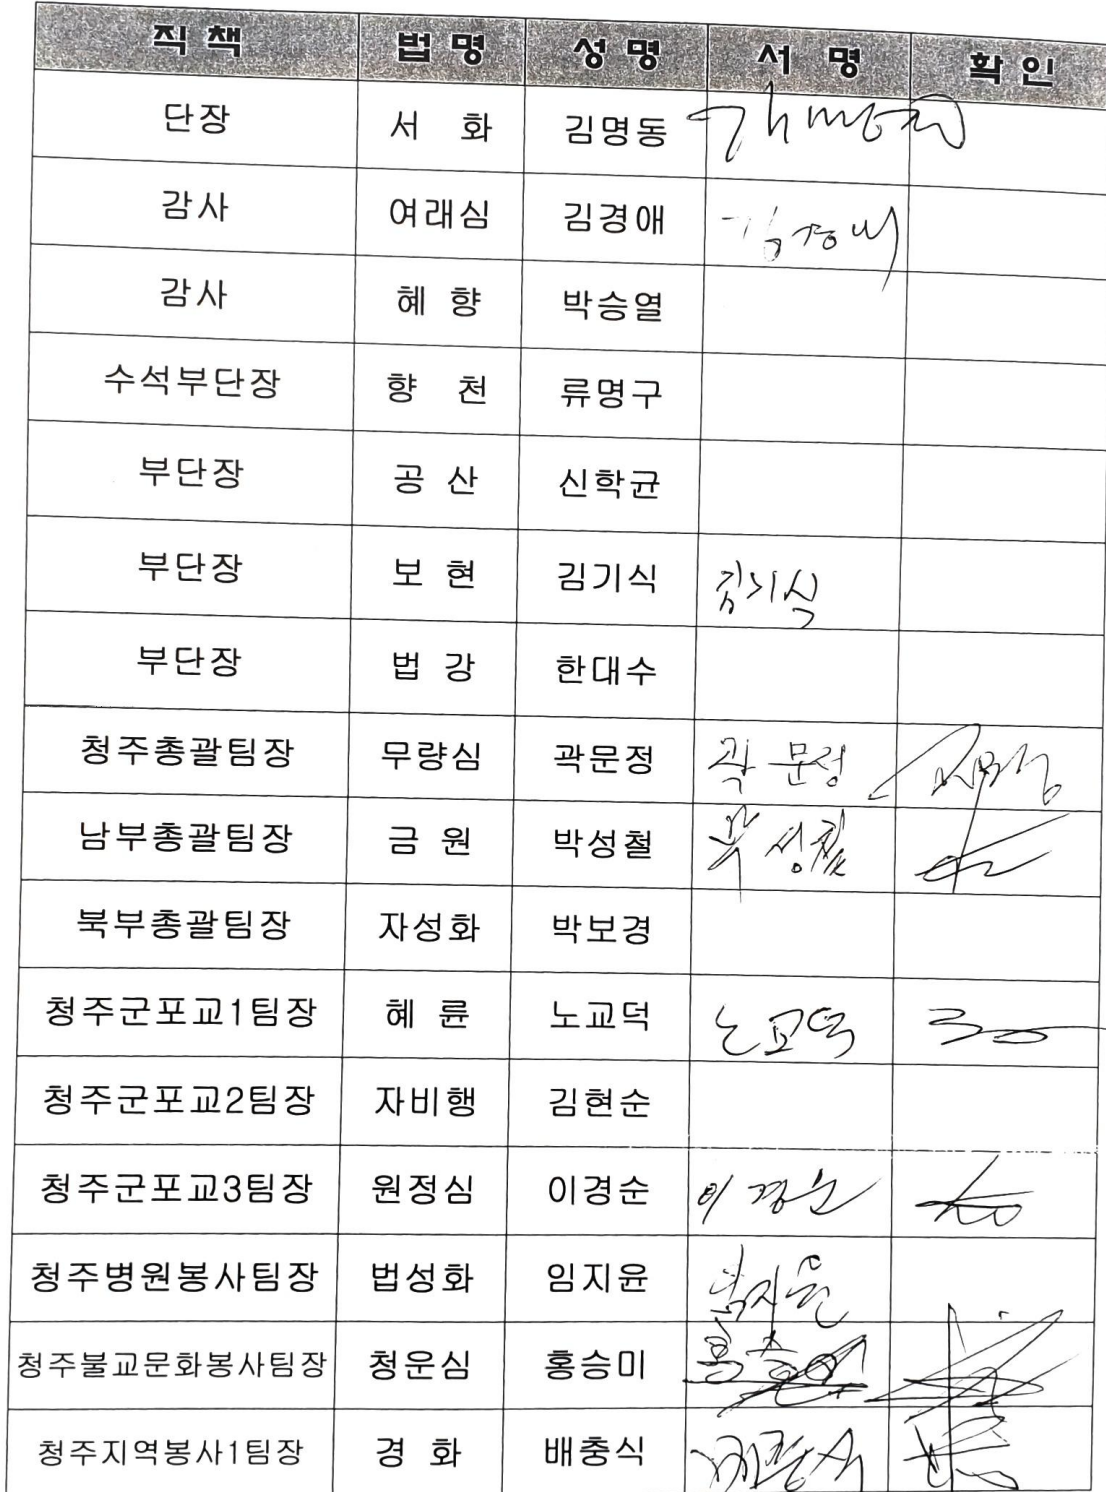 직 책 법 명 성 명 서 명 확 인
단장 서 화 김명동
감사 여래심 김경애 김경애
감사 혜 향 박승열
수석부단장 향 천 류명구
부단장 공 산 신학균
부단장 보 현 김기식 김기식
부단장 법 강 한대수
청주총괄팀장 무량심 곽문정 곽문정
남부총괄팀장 금 원 박성철 박성철
북부총괄팀장 자성화 박보경
청주군포교1팀장 혜 륜 노교덕 노교덕
청주군포교2팀장 자비행 김현순
청주군포교3팀장 원정심 이경순 이경순
청주병원봉사팀장 법성화 임지윤
청주불교문화봉사팀장 청운심 홍승미
청주지역봉사1팀장 경 화 배충식 배충식